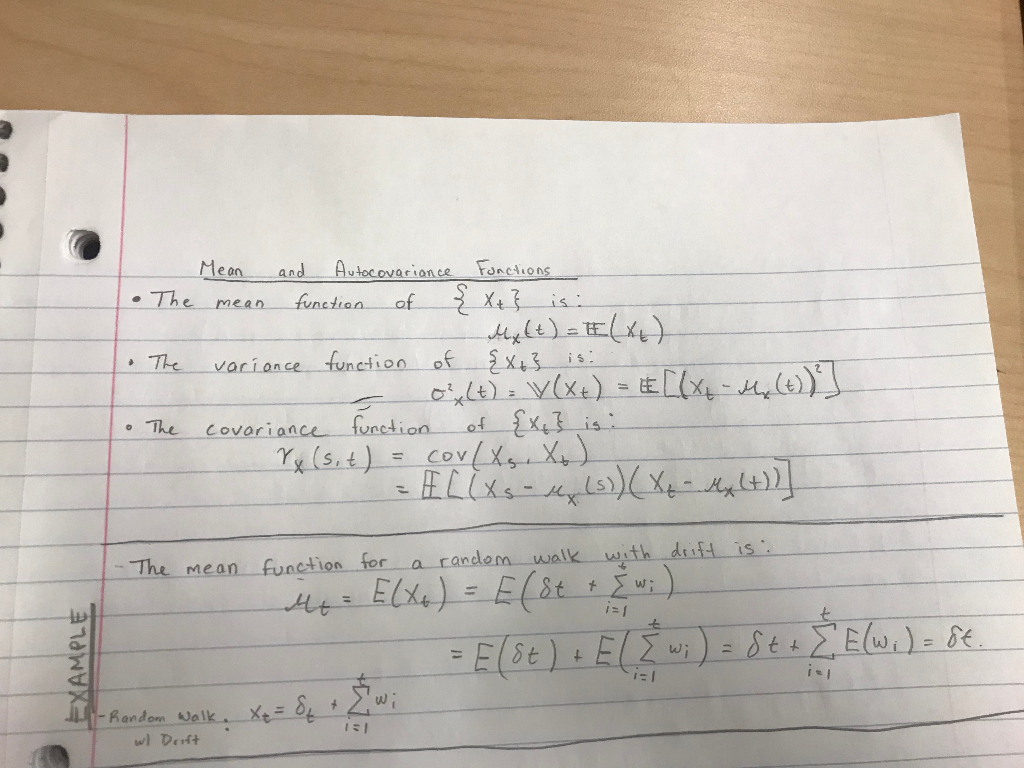 Mean and Autocovariance Functions
• The mean function of {Xt} is:
μx(t) = 𝔼(Xt)
• The variance function of {Xt} is:
σ²x(t) = 𝕍(Xt) = 𝔼[(Xt - μx(t))²]
• The covariance function of {Xt} is:
γx(s,t) = cov(Xs, Xt)
= 𝔼[(Xs - μx(s))(Xt - μx(t))]
- The mean function for a random walk with drift is:
μt = E(Xt) = E(δt + Σ_{i=1}^{t} wi)
= E(δt) + E(Σ_{i=1}^{t} wi) = δt + Σ_{i=1}^{t} E(wi) = δt.
EXAMPLE
- Random Walk : Xt = δt + Σ_{i=1}^{t} wi
w/ Drift